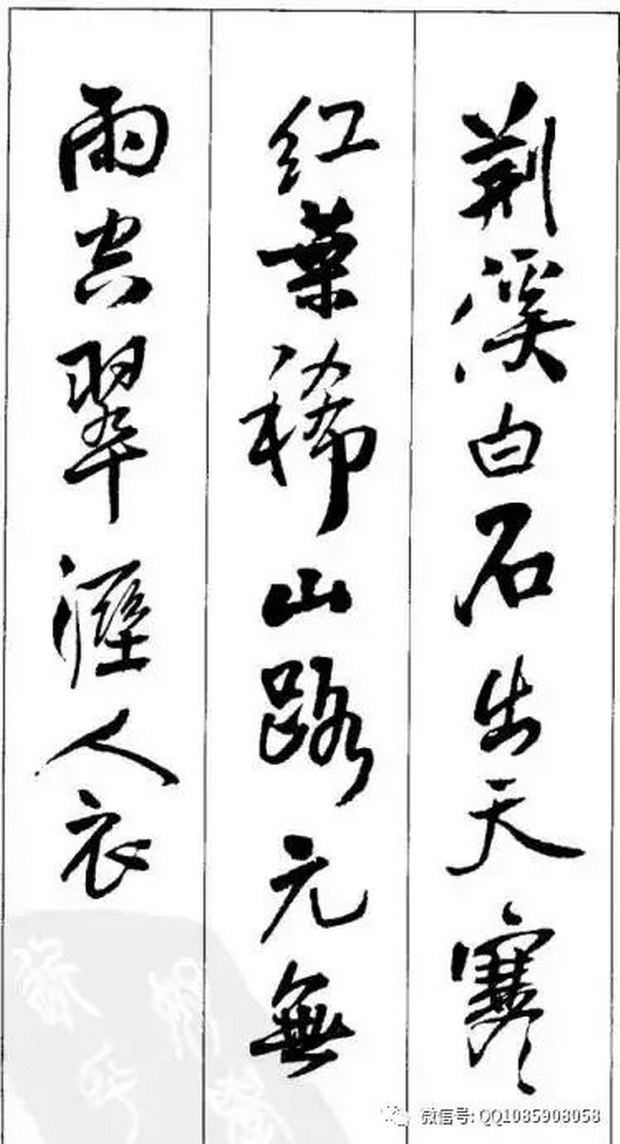 荆溪白石出天寒
红葉稀山路元無
雨空翠溼人衣
微信号: QQ1085908058